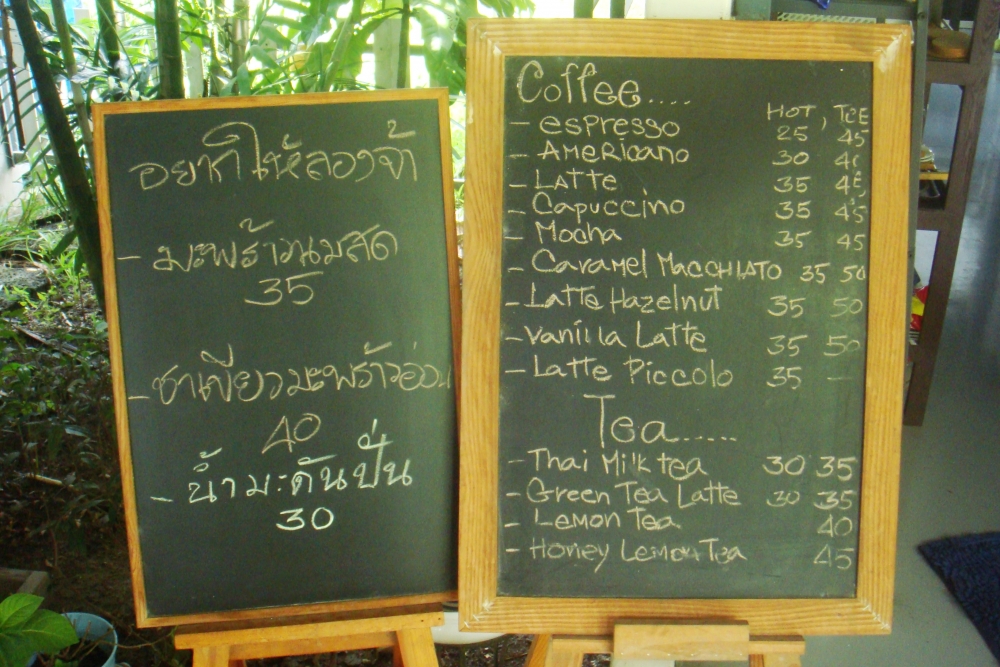 อยากให้ลองจ้า
- มะพร้าวนมสด
35
- ชาเขียวมะพร้าวอ่อน
40
- น้ำมะดันปั่น
30
Coffee....
HOT, ICE
- espresso 25 45
- AMERICANO 30
- LATTE 35
- Capuccino 35 45
- Mocha 35 45
- Caramel MACCHIATO 35 50
- Latte Hazelnut 35 50
- Vanilla Latte 35 50
- Latte Piccolo 35 -
Tea.....
- Thai Milk tea 30 35
- Green Tea Latte 30 35
- Lemon Tea 40
- Honey Lemon Tea 45